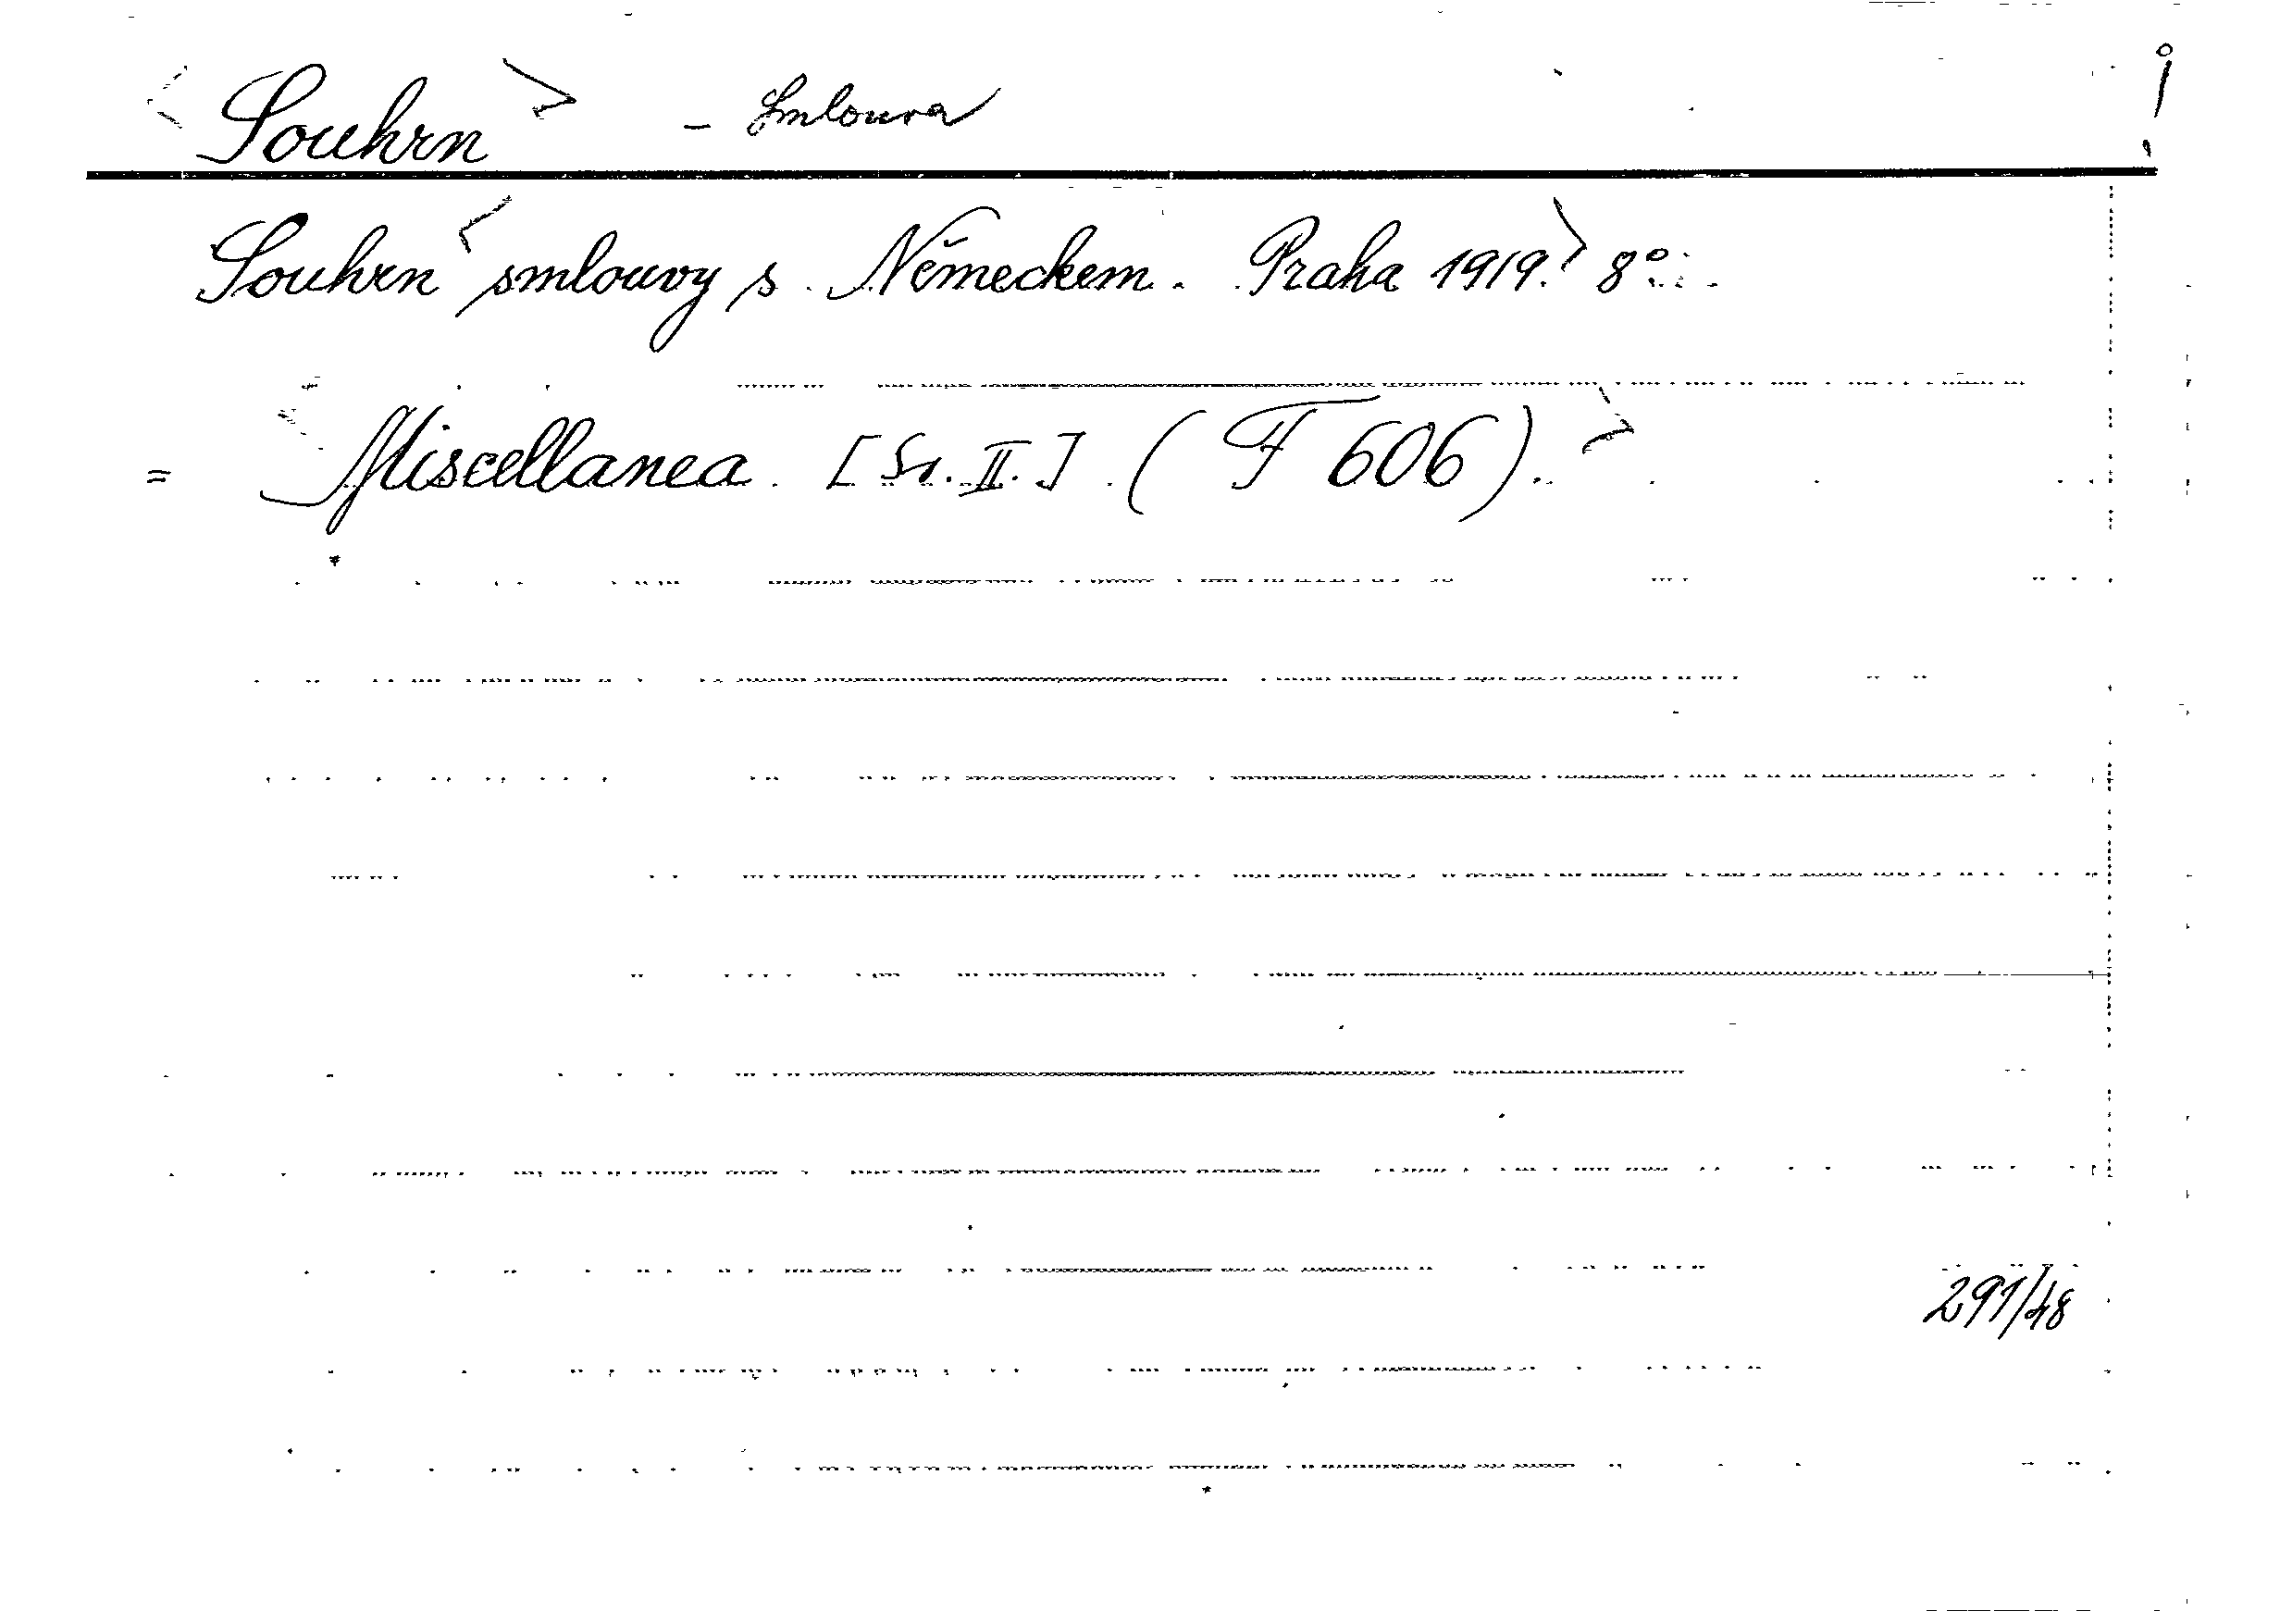 <Souhrn> - Smlouva
Souhrn <smlouvy s Německem. Praha 1919.> 8°.
= <Miscellanea. [Sv. II.] (F 606).>
291/48